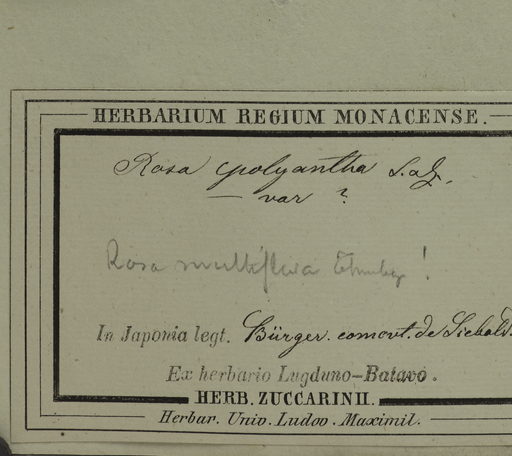 HERBARIUM REGIUM MONACENSE.
Rosa polyantha S. a Z.
— var ?
Rosa multiflora Thunbg !
In Japonia legt. Bürger. comont. de Siebold.
Ex herbario Lugduno-Batavo.
HERB. ZUCCARINII.
Herbar. Univ. Ludov. Maximil.